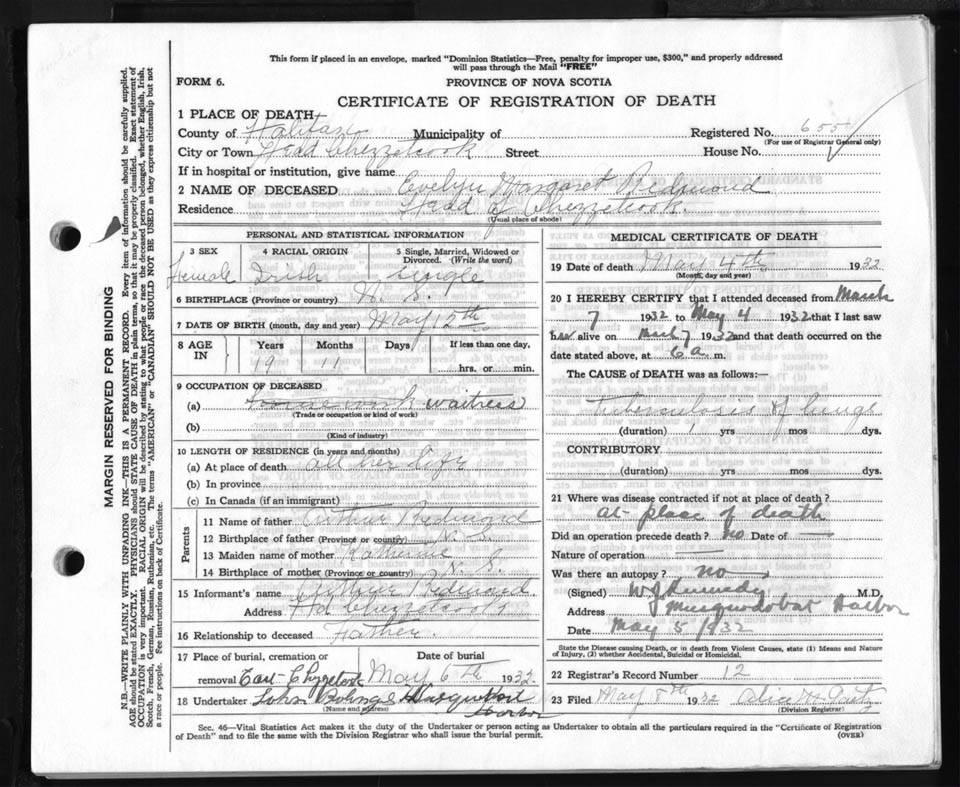 This form if placed in an envelope, marked "Dominion Statistics—Free, penalty for improper use, $300," and properly addressed
will pass through the Mail "FREE"
FORM 6.
PROVINCE OF NOVA SCOTIA
CERTIFICATE OF REGISTRATION OF DEATH
1 PLACE OF DEATH
County of Halifax Municipality of Registered No. 655
(For use of Registrar General only)
City or Town Head Chezzetcook Street House No.
If in hospital or institution, give name
2 NAME OF DECEASED Evelyn Margaret Redmond
Residence Head of Chezzetcook.
(Usual place of abode)
PERSONAL AND STATISTICAL INFORMATION
3 SEX 4 RACIAL ORIGIN 5 Single, Married, Widowed or Divorced. (Write the word)
Female Irish single
6 BIRTHPLACE (Province or country) N. S.
7 DATE OF BIRTH (month, day and year) May 12th
8 AGE IN Years Months Days If less than one day,
19 11 hrs. or min.
9 OCCUPATION OF DECEASED
(a) waitress
(Trade or occupation or kind of work)
(b)
(Kind of industry)
10 LENGTH OF RESIDENCE (in years and months)
(a) At place of death all her life
(b) In province
(c) In Canada (if an immigrant)
Parents
11 Name of father Arthur Redmond
12 Birthplace of father (Province or country) N. S.
13 Maiden name of mother Katherine
14 Birthplace of mother (Province or country) N. S.
15 Informant's name Arthur Redmond
Address Hd Chezzetcook
16 Relationship to deceased Father.
17 Place of burial, cremation or removal Date of burial
East Chezzetcook May 6th 1932.
18 Undertaker John Musquodoboit
(Name and address)
Harbor
MEDICAL CERTIFICATE OF DEATH
19 Date of death May 4th 1932
(Month, day and year)
20 I HEREBY CERTIFY that I attended deceased from March
7 1932 to May 4 1932 that I last saw
her alive on 1932 and that death occurred on the
date stated above, at 6 a. m.
The CAUSE of DEATH was as follows:—
Tuberculosis of lungs
(duration) 1 yrs mos dys.
CONTRIBUTORY
(duration) yrs. mos. dys.
21 Where was disease contracted if not at place of death?
At place of death
Did an operation precede death? no Date of —
Nature of operation —
Was there an autopsy? no
(Signed) W J Kennedy M.D.
Address Musquodobot Harbor
Date May 5 1932
State the Disease causing Death, or in death from Violent Causes, state (1) Means and Nature
of Injury, (2) whether Accidental, Suicidal or Homicidal.
22 Registrar's Record Number 12
23 Filed May 8th 1932
(Division Registrar)
Sec. 46—Vital Statistics Act makes it the duty of the Undertaker or person acting as Undertaker to obtain all the particulars required in the "Certificate of Registration
of Death" and to file the same with the Division Registrar who shall issue the burial permit.
(OVER)
MARGIN RESERVED FOR BINDING
N.B.—WRITE PLAINLY WITH UNFADING INK—THIS IS A PERMANENT RECORD. Every item of information should be carefully supplied.
AGE should be stated EXACTLY. PHYSICIANS should STATE CAUSE OF DEATH in plain terms, so that it may be properly classified. Exact statement of
OCCUPATION is very important. RACIAL ORIGIN will be described by stating to what people or race the deceased person belonged, whether English, Irish,
Scotch, French, German, Russian, Ruthenian, etc. The terms "AMERICAN" or "CANADIAN" SHOULD NOT BE USED as they express citizenship but not
a race or people. See instructions on back of Certificate.